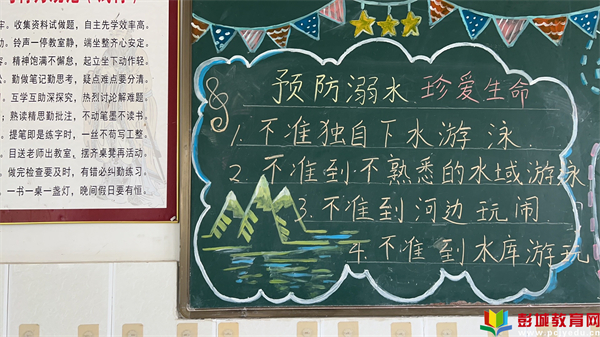 收集资料试做题，自主先学效率高。
铃声一停教室静，端坐整齐心安定。
精神饱满不懈怠，起立坐下动作轻。
勤做笔记勤思考，疑点难点要分清。
互学互助深探究，热烈讨论解难题。
熟读精思勤批注，不动笔墨不读书。
提笔即是练字时，一丝不苟写工整。
目送老师出教室，摆齐桌凳再活动。
做完检查要及时，有错必纠勤练习。
一书一桌一盏灯，晚间假日要有恒。
预防溺水 珍爱生命
1.不准独自下水游泳.
2.不准到不熟悉的水域游泳
3.不准到河边玩闹.
4.不准到水库游玩
彭城教育网